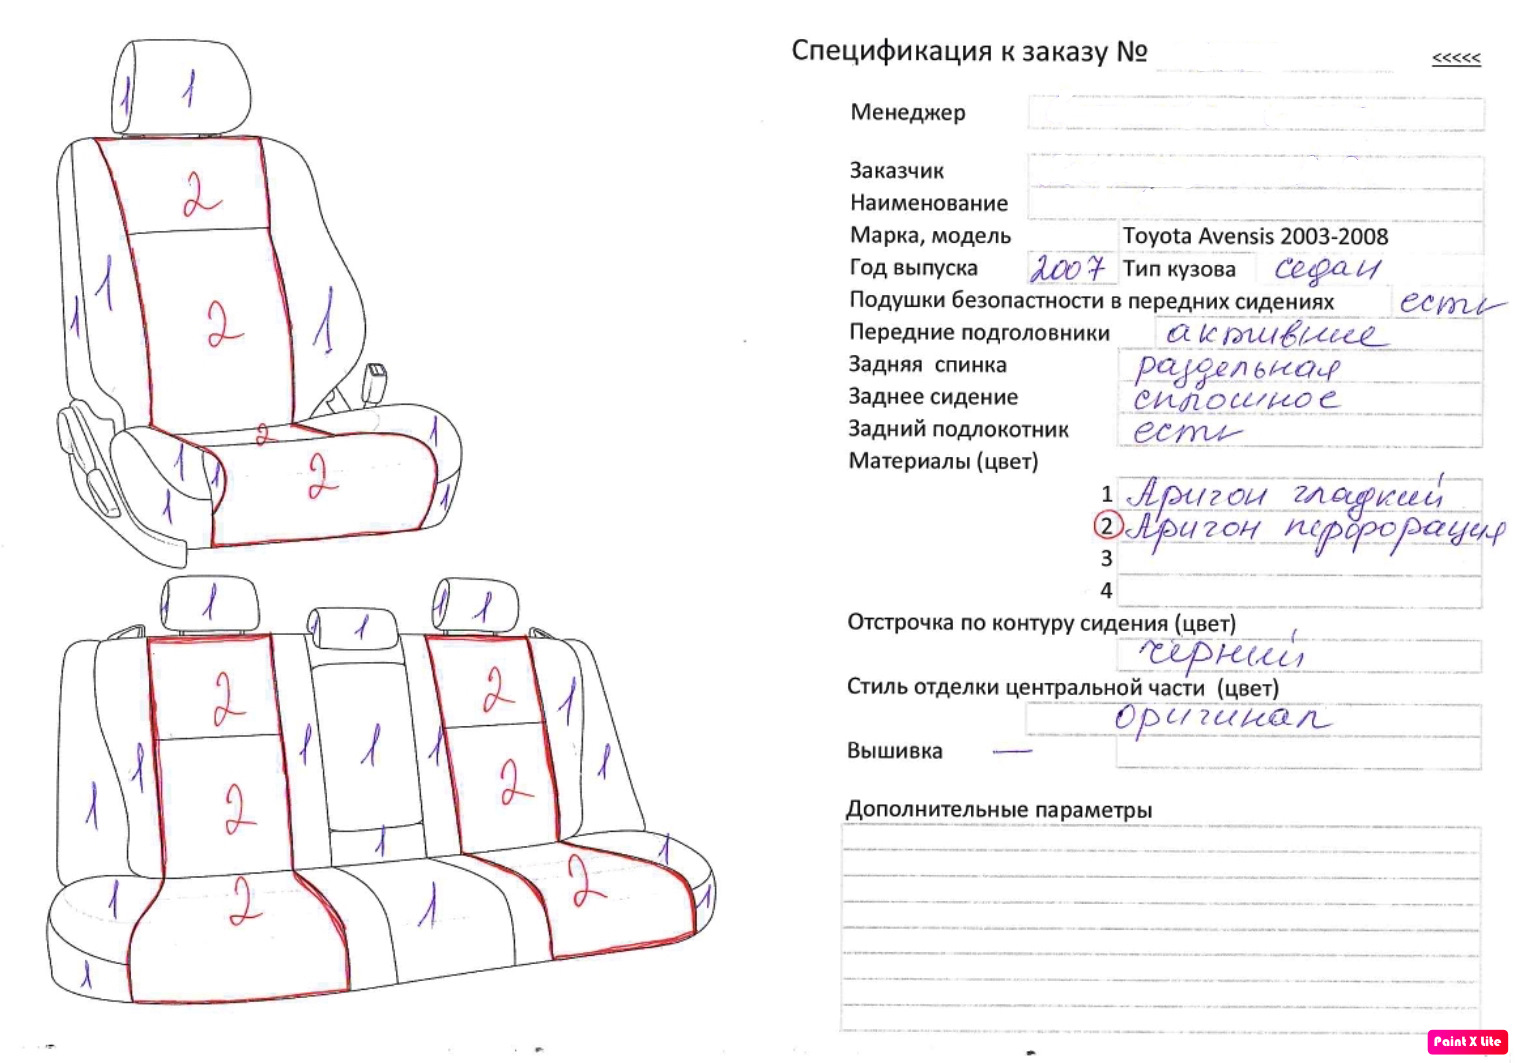 Спецификация к заказу № <<<<<
Менеджер
Заказчик
Наименование
Марка, модель Toyota Avensis 2003-2008
Год выпуска 2007 Тип кузова седан
Подушки безопастности в передних сидениях есть
Передние подголовники активные
Задняя спинка раздельная
Заднее сидение сплошное
Задний подлокотник есть
Материалы (цвет)
1 Аригон гладкий
2 Аригон перфорация
3
4
Отстрочка по контуру сидения (цвет)
чёрный
Стиль отделки центральной части (цвет)
оригинал
Вышивка —
Дополнительные параметры
1 1
2
1 1 2 1
2 1
1 1 2
1 1
1 1 1 1 1 1
2 2 1
1 1 1 1 1
1 2 2
1 1
1 2 1 2 1
1
Paint X lite